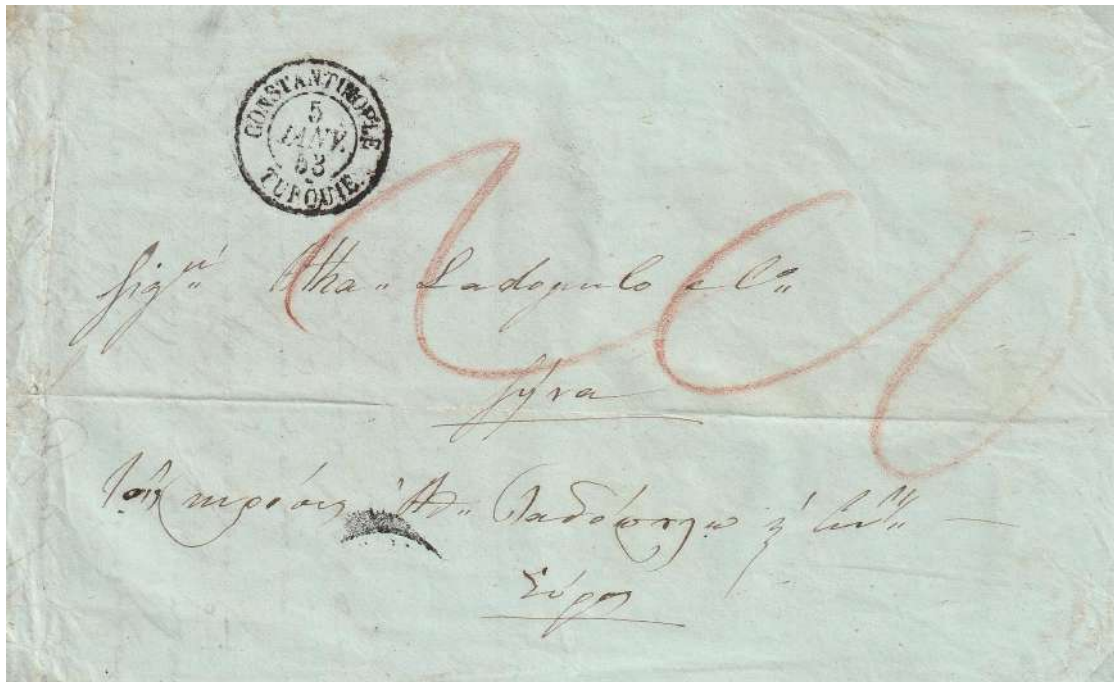 CONSTANTINOPLE
5
JANV.
53
TURQUIE
Sig.ri Atha„ Ladopulo e C„
Syra
κυρίοις Ἀθ„ Λαδόπουλω
Σύρον